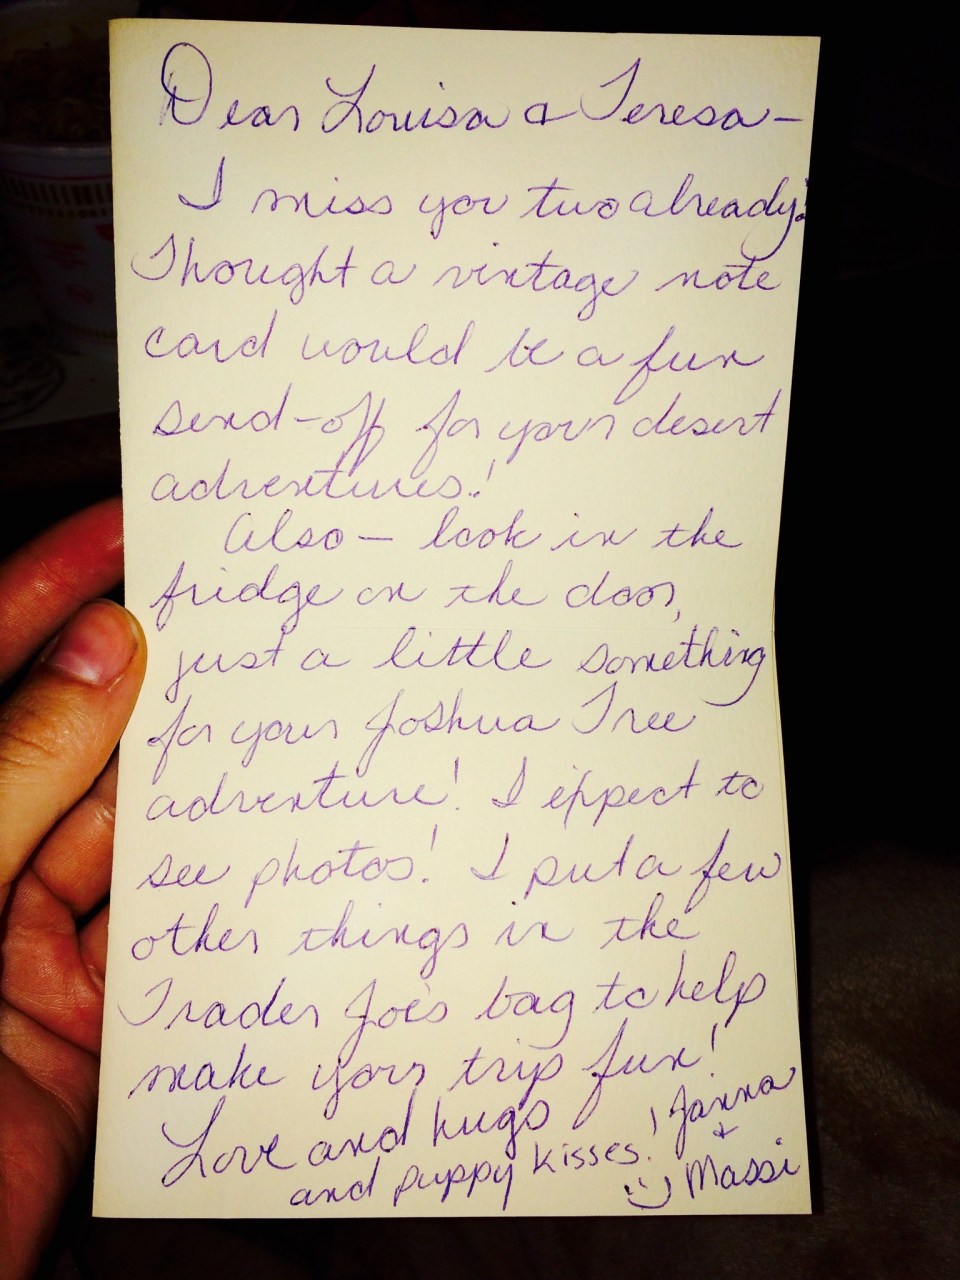 Dear Louisa & Teresa—
I miss you two already!
Thought a vintage note
card would be a fun
send-off for your desert
adventures!
Also — look in the
fridge on the door,
just a little something
for your Joshua Tree
adventure! I expect to
see photos! I put a few
other things in the
Trader Joe's bag to help
make your trip fun!
Love and hugs
and puppy kisses! Janna
&
:) Massi